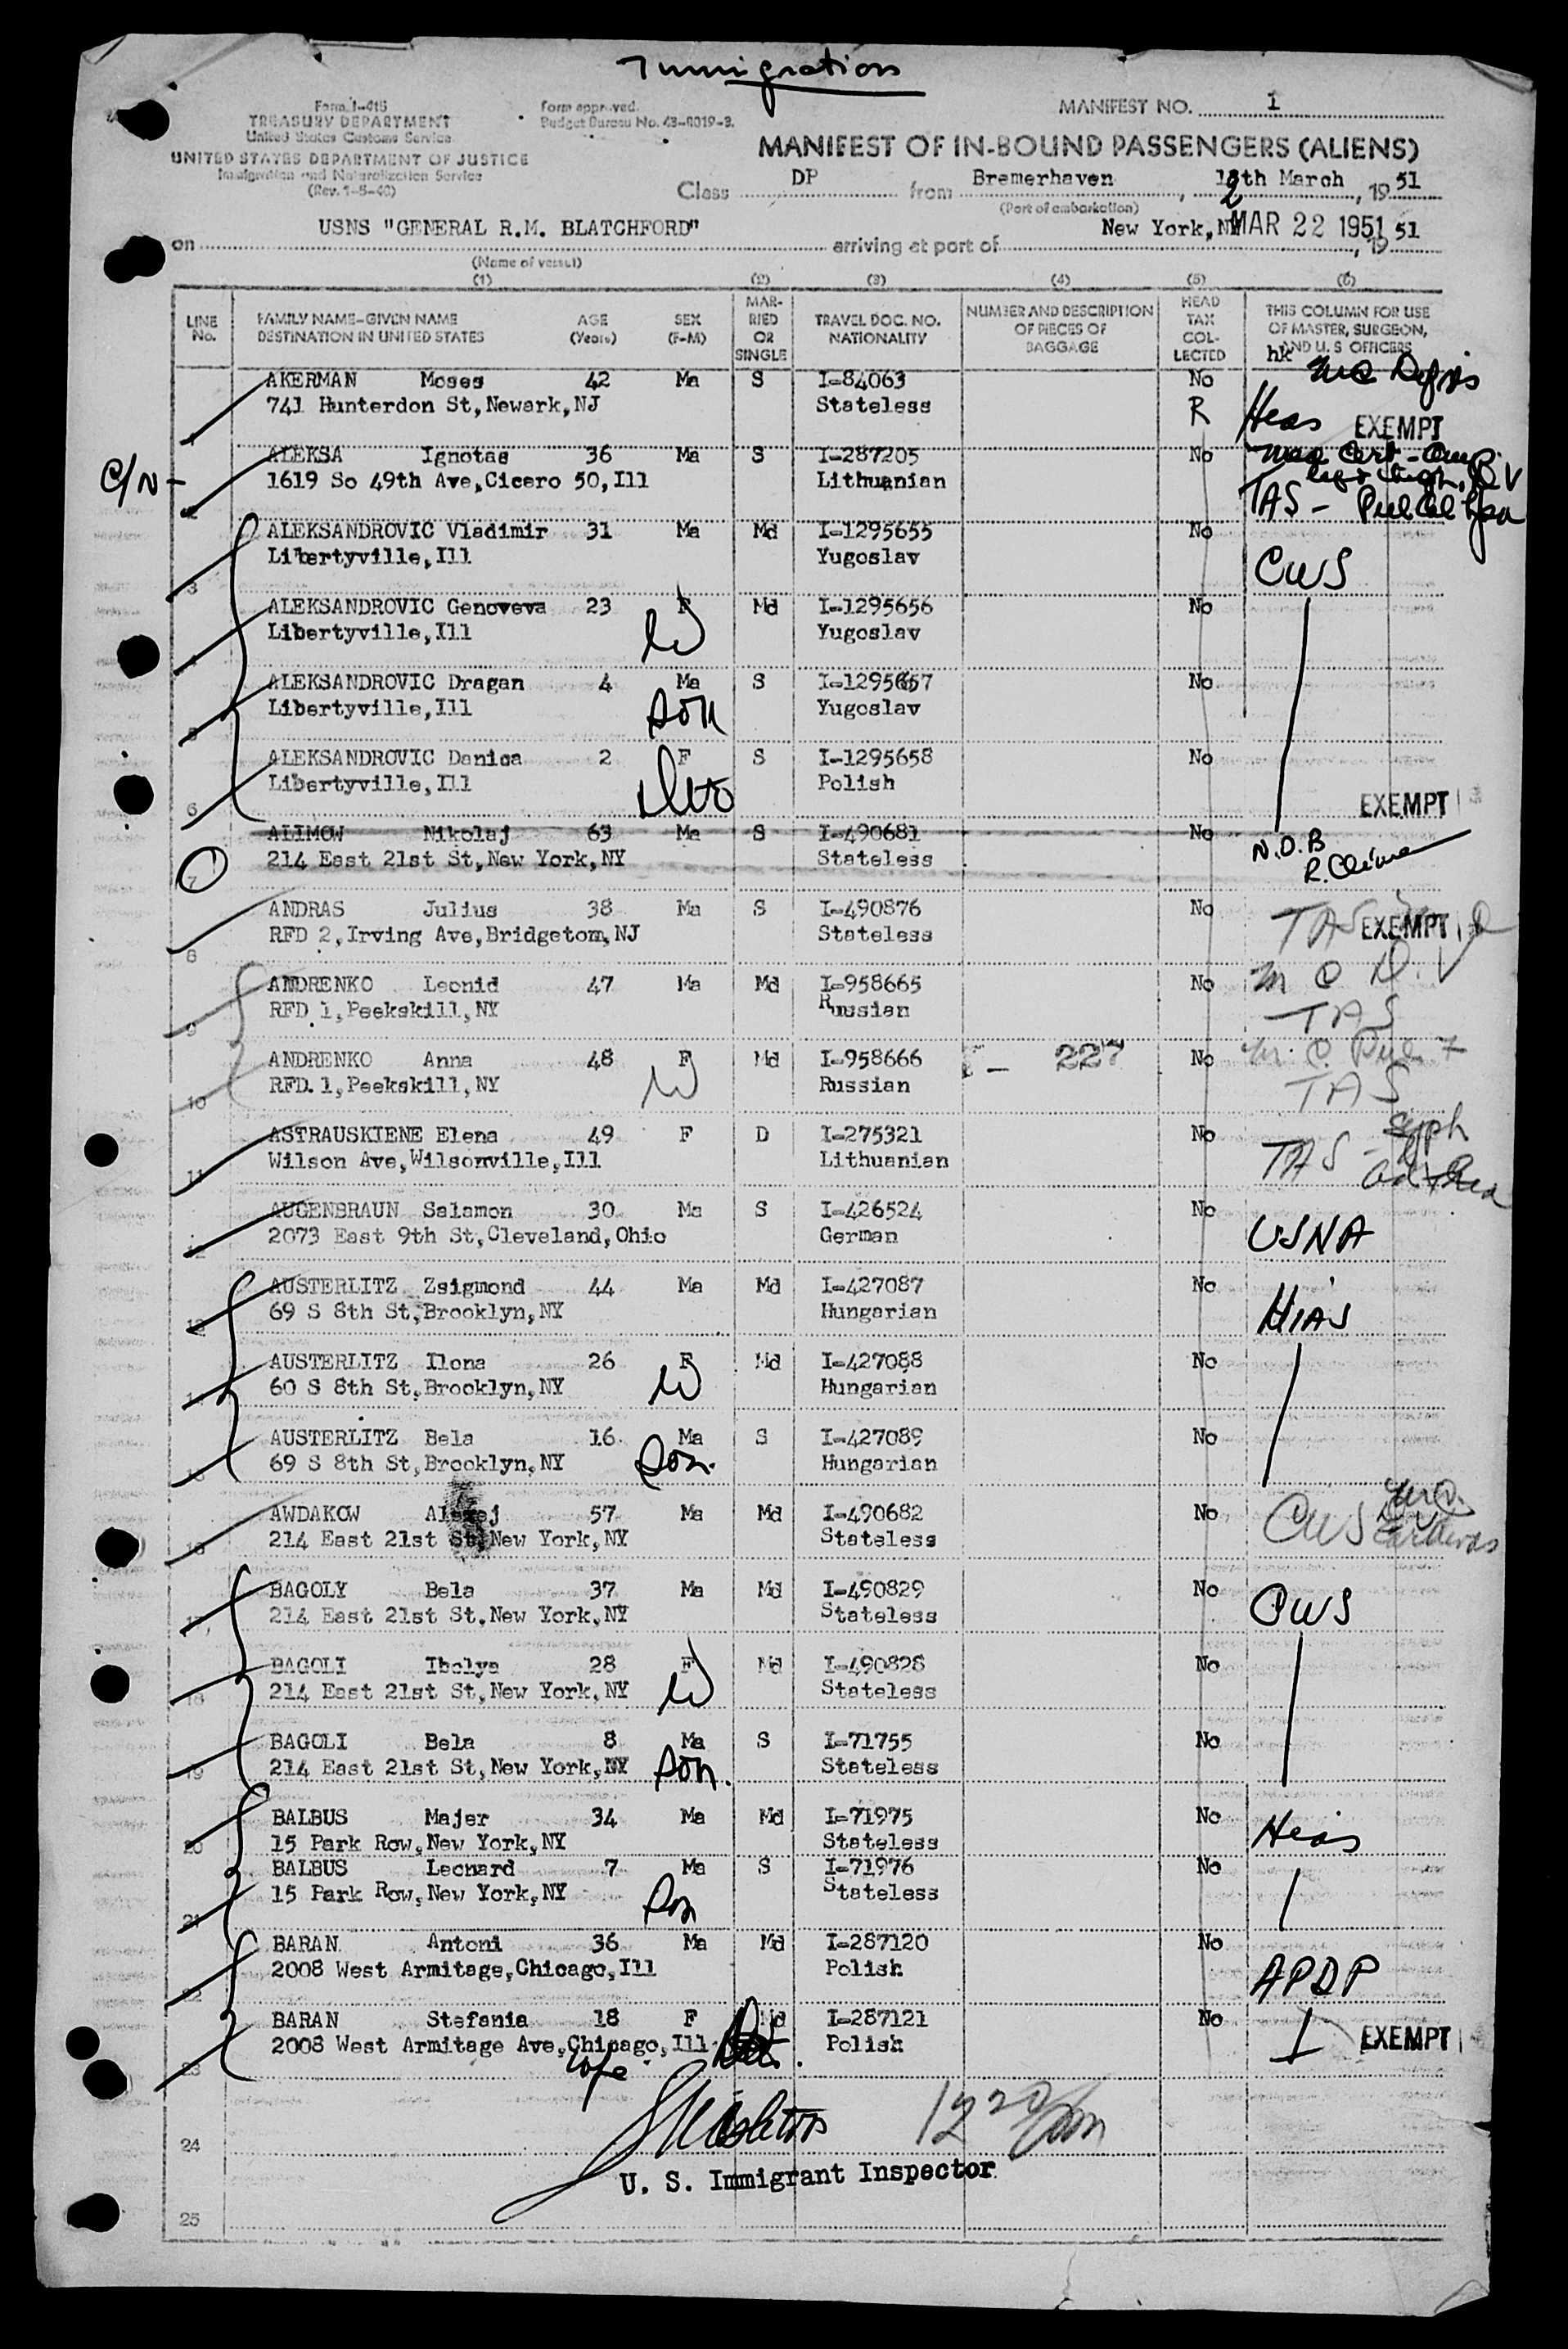 Immigration
Form I-415
TREASURY DEPARTMENT
United States Customs Service
UNITED STATES DEPARTMENT OF JUSTICE
Immigration and Naturalization Service
Form approved.
Budget Bureau No. 43-R019-3.
MANIFEST NO. 1
MANIFEST OF IN-BOUND PASSENGERS (ALIENS)
Class DP from Bremerhaven, 12th March, 19 51
(Port of embarkation)
on USNS "GENERAL R.M. BLATCHFORD" arriving at port of New York, NY MAR 22 1951, 19 51
(Name of vessel)
(1) (2) (3) (4) (5) (6)
LINE No. FAMILY NAME-GIVEN NAME DESTINATION IN UNITED STATES AGE (Years) SEX (F-M) MAR-RIED OR SINGLE TRAVEL DOC. NO. NATIONALITY NUMBER AND DESCRIPTION OF PIECES OF BAGGAGE HEAD TAX COL-LECTED THIS COLUMN FOR USE OF MASTER, SURGEON, AND U. S OFFICERS
hk
1 AKERMAN Moses 42 Ma S I-84063 No
741 Hunterdon St, Newark, NJ Stateless R Hias EXEMPT
C/N - 2 ALEKSA Ignotas 36 Ma S I-287205 No
1619 So 49th Ave, Cicero 50, Ill Lithuanian TAS -
3 ALEKSANDROVIC Vladimir 31 Ma Md I-1295655 No
Libertyville, Ill Yugoslav CWS
4 ALEKSANDROVIC Genoveva 23 F Md I-1295656 No
Libertyville, Ill W Yugoslav
5 ALEKSANDROVIC Dragan 4 Ma S I-1295657 No
Libertyville, Ill son Yugoslav
6 ALEKSANDROVIC Danica 2 F S I-1295658 No
Libertyville, Ill Polish EXEMPT
7 ALIMOW Nikolaj 63 Ma S I-490681 No N.O.B
214 East 21st St, New York, NY Stateless
8 ANDRAS Julius 38 Ma S I-490876 No TAS EXEMPT
RFD 2, Irving Ave, Bridgetom, NJ Stateless
9 ANDRENKO Leonid 47 Ma Md I-958665 No
RFD 1, Peekskill, NY Russian TAS
10 ANDRENKO Anna 48 F Md I-958666 227 No
RFD. 1, Peekskill, NY W Russian TAS
11 ASTRAUSKIENE Elena 49 F D I-275321 No
Wilson Ave, Wilsonville, Ill Lithuanian TAS - Syph
12 AUGENBRAUN Salamon 30 Ma S I-426524 No
2073 East 9th St, Cleveland, Ohio German USNA
13 AUSTERLITZ Zsigmond 44 Ma Md I-427087 No
69 S 8th St, Brooklyn, NY Hungarian HIAS
14 AUSTERLITZ Ilona 26 F Md I-427088 No
60 S 8th St, Brooklyn, NY W Hungarian
15 AUSTERLITZ Bela 16 Ma S I-427089 No
69 S 8th St, Brooklyn, NY Son. Hungarian
16 AWDAKOW 57 Ma Md I-490682 No
214 East 21st St, New York, NY Stateless CWS
17 BAGOLY Bela 37 Ma Md I-490829 No
214 East 21st St. New York, NY Stateless CWS
18 BAGOLI Ibolya 28 F Md I-490828 No
214 East 21st St, New York, NY W Stateless
19 BAGOLI Bela 8 Ma S I-71755 No
214 East 21st St, New York, NY son. Stateless
20 BALBUS Majer 34 Ma Md I-71975 No
15 Park Row, New York, NY Stateless Hias
BALBUS Leonard 7 Ma S I-71976 No
21 15 Park Row, New York, NY Son Stateless
22 BARAN Antoni 36 Ma Md I-287120 No
2008 West Armitage, Chicago, Ill Polish APDP
23 BARAN Stefania 18 F Md I-287121 No
2008 West Armitage Ave, Chicago, Ill Polish EXEMPT
wife
24 12 20 pm
U. S. Immigrant Inspector
25